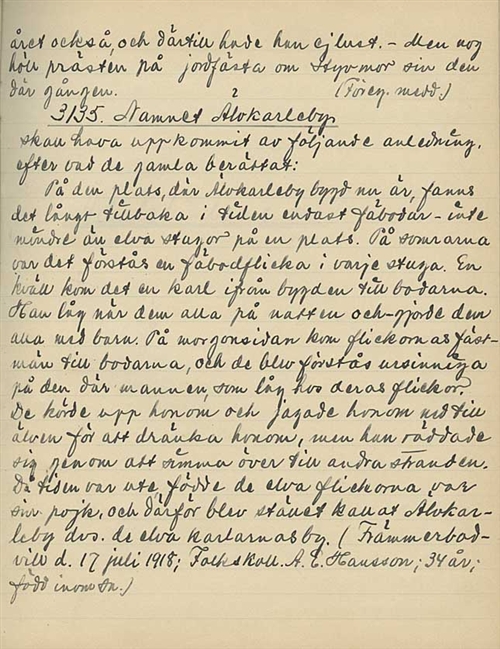 året också, och därtill hade han ej lust. – Men nog
höll prästen på jordfästa om styvmor sin den
där gången. (Föreg. medd.)
2
3135. Namnet Älvkarleby,
skall hava uppkommit av följande anledning,
efter vad de gamla berättat:
På den plats, där Älvkarleby bygd nu är, fanns
det långt tillbaka i tiden endast fäbodar – inte
mindre än elva stugor på en plats. På somrarna
var det förstås en fäbodflicka i varje stuga. En
kväll kom det en karl ifrån bygden till bodarna.
Han låg när dem alla på natten och gjorde dem
alla med barn. På morgonsidan kom flickornas fäst-
män till bodarna, och de blev förstås ursinniga
på den där mannen, som låg hos deras flickor.
De körde upp honom och jagade honom ned till
älven för att dränka honom, men han räddade
sig genom att simma över till andra stranden.
Då tiden var ute, födde de elva flickorna var
sin pojk, och därför blev stället kallat Älvkar-
leby dvs. de elva karlarnas by. (
d. 17 juli 1918; Folkskoll. A. E. Hansson; 34 år;
född inom sn.)